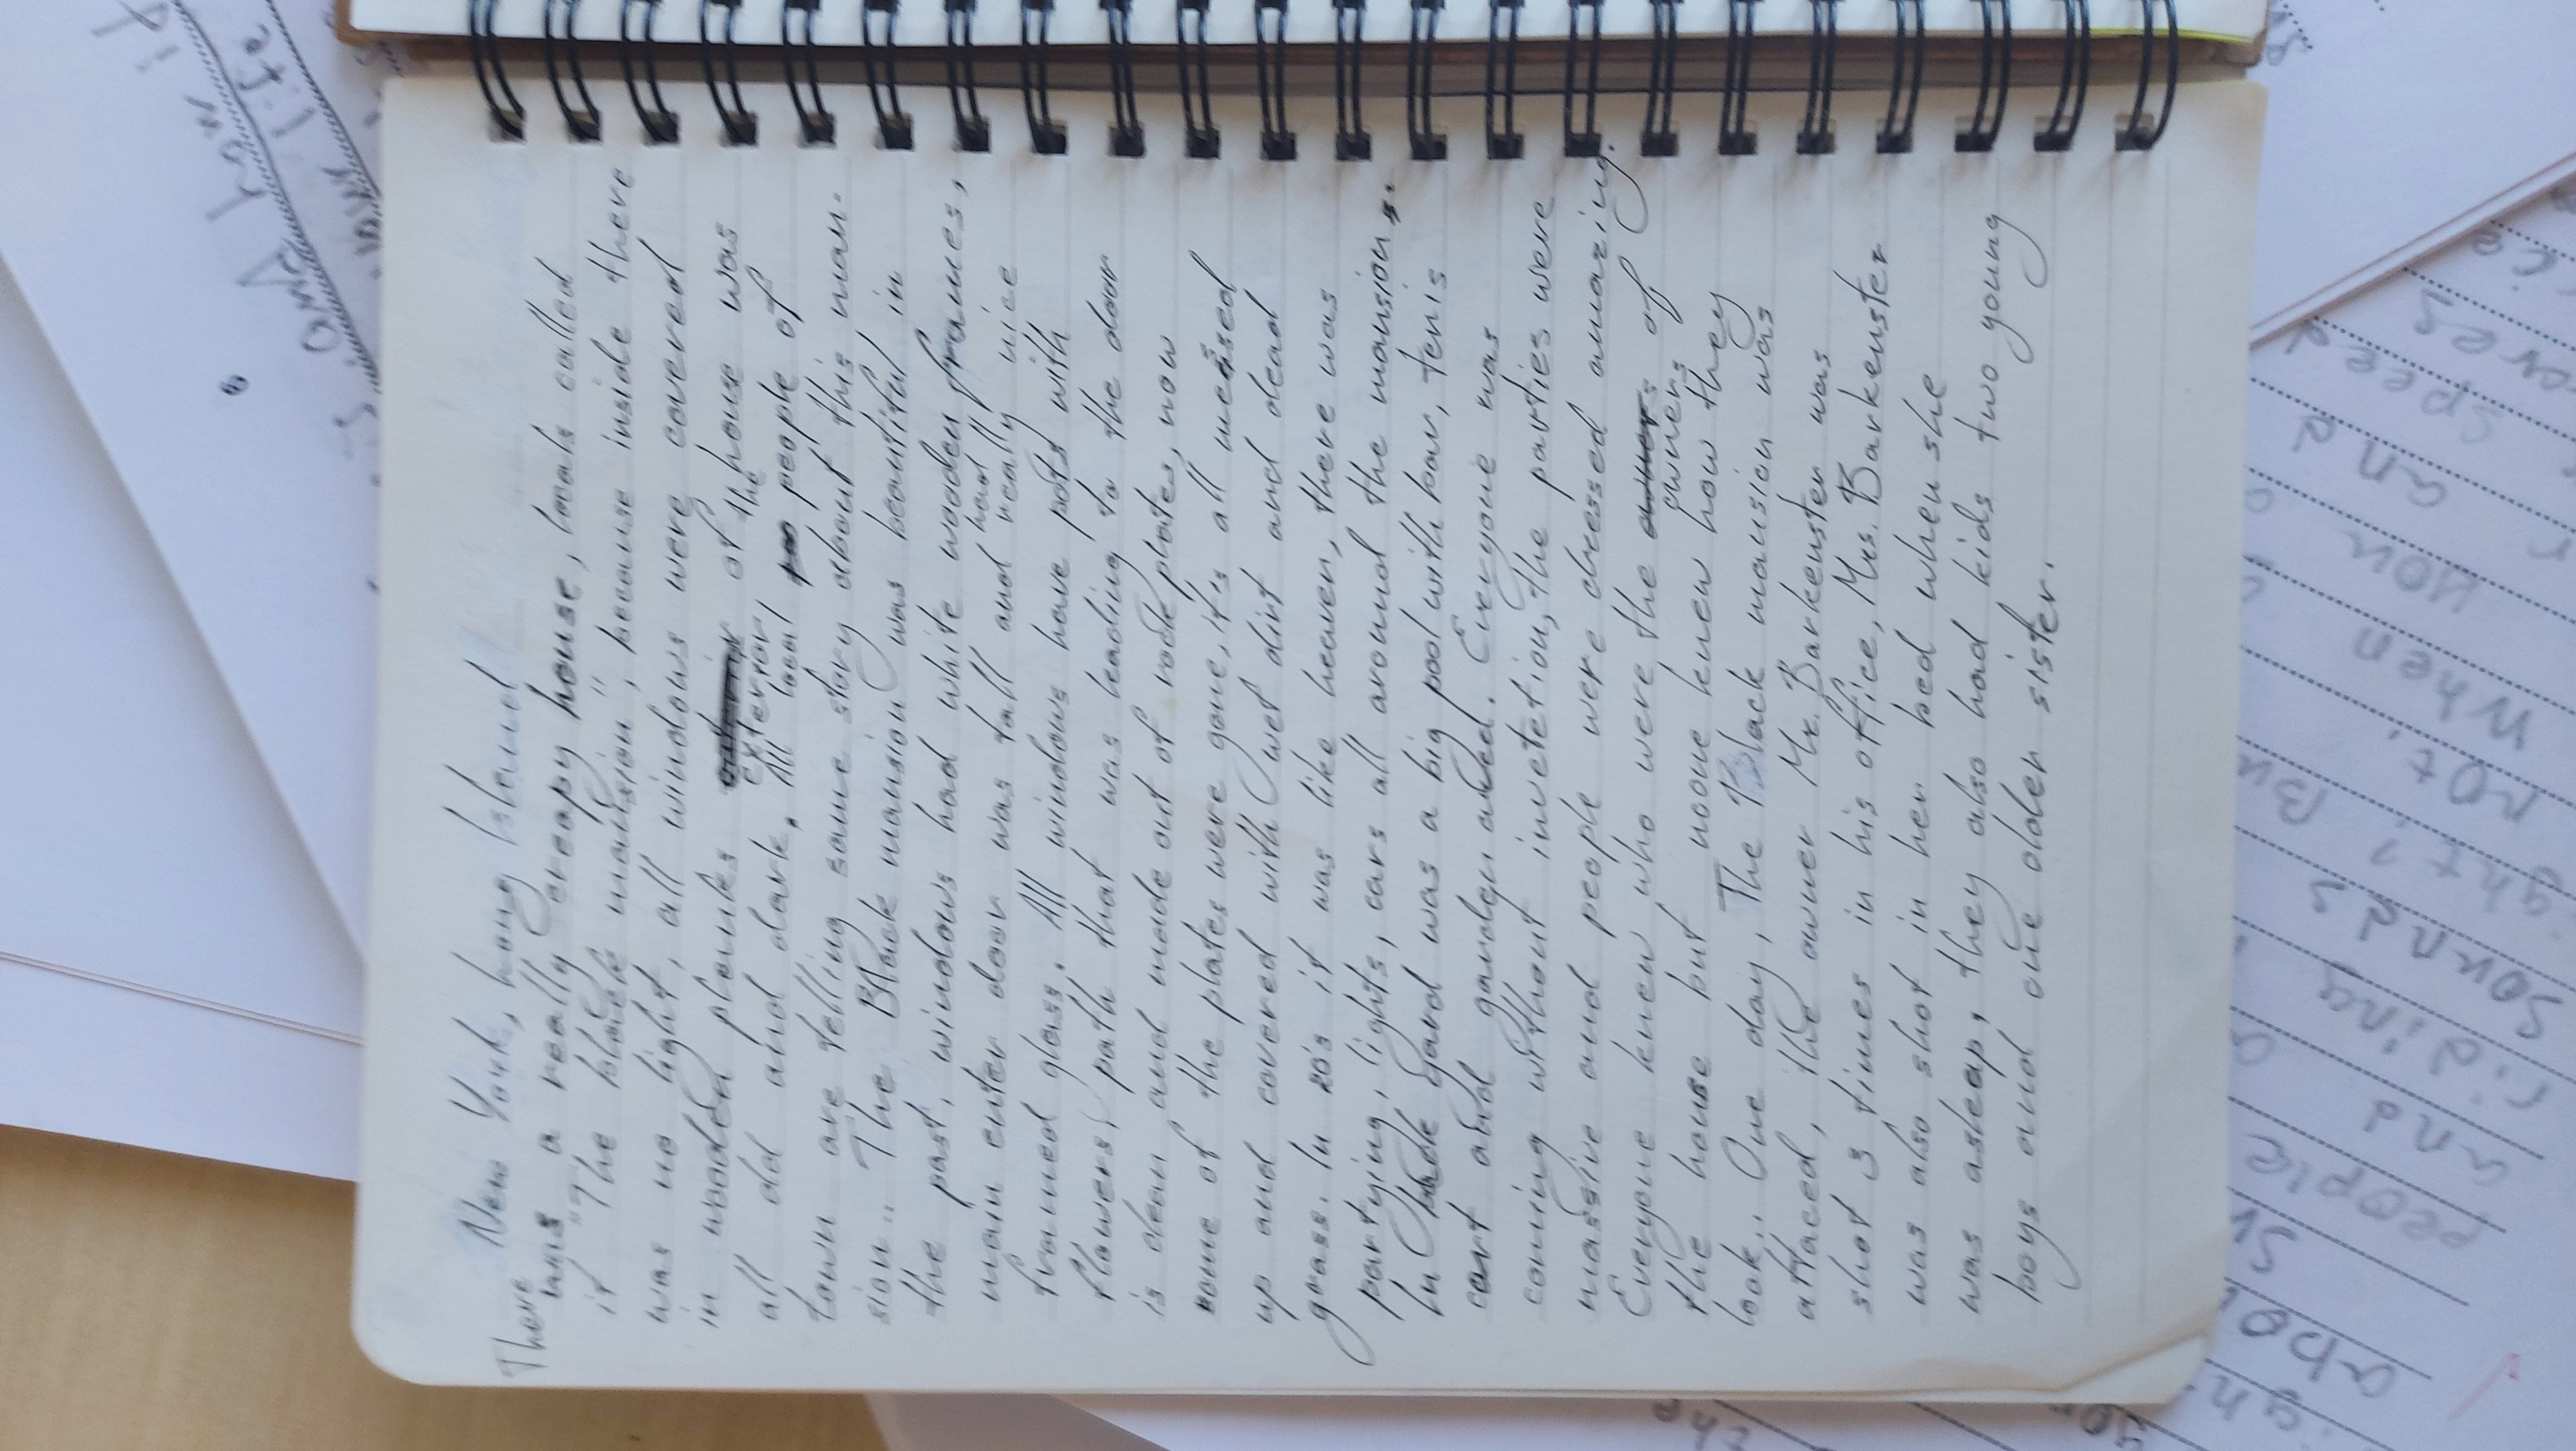 and how it
your life
New York, Long Island
There was a really creapy house, locals called
it "The black mansion", because inside there
was no light, all windows were covered
in wooden planks exterior of the house was
all old and dark. All local people of
town are telling same story about this man-
sion.. The Black mansion was beautiful in
the past, windows had white wooden frames,
main enter door was tall and had really nice
framed glass. All windows have pots with
flowers, path that was leading to the door
is clean and made out of rock plates, now
some of the plates were gone, it's all messed
up and covered with wet dirt and dead
grass. In 20's it was like heaven, there was
partying, lights, cars all around the mansion.
In back yard was a big pool with bar, tenis
cort and garden area. Everyone was
coming without invetetion, the parties were
massive and people were dressed amazing.
Everyone knew who were the owners of
the house but noone knew how they
look.. One day, The Black mansion was
attaced, the owner Mr. Barkenster was
shot 3 times in his office, Mrs. Barkenster
was also shot in her bed when she
was asleap, they also had kids two young
boys and one older sister.
the
people
and
riding
sounds
not. Bu
When
you
and
speed